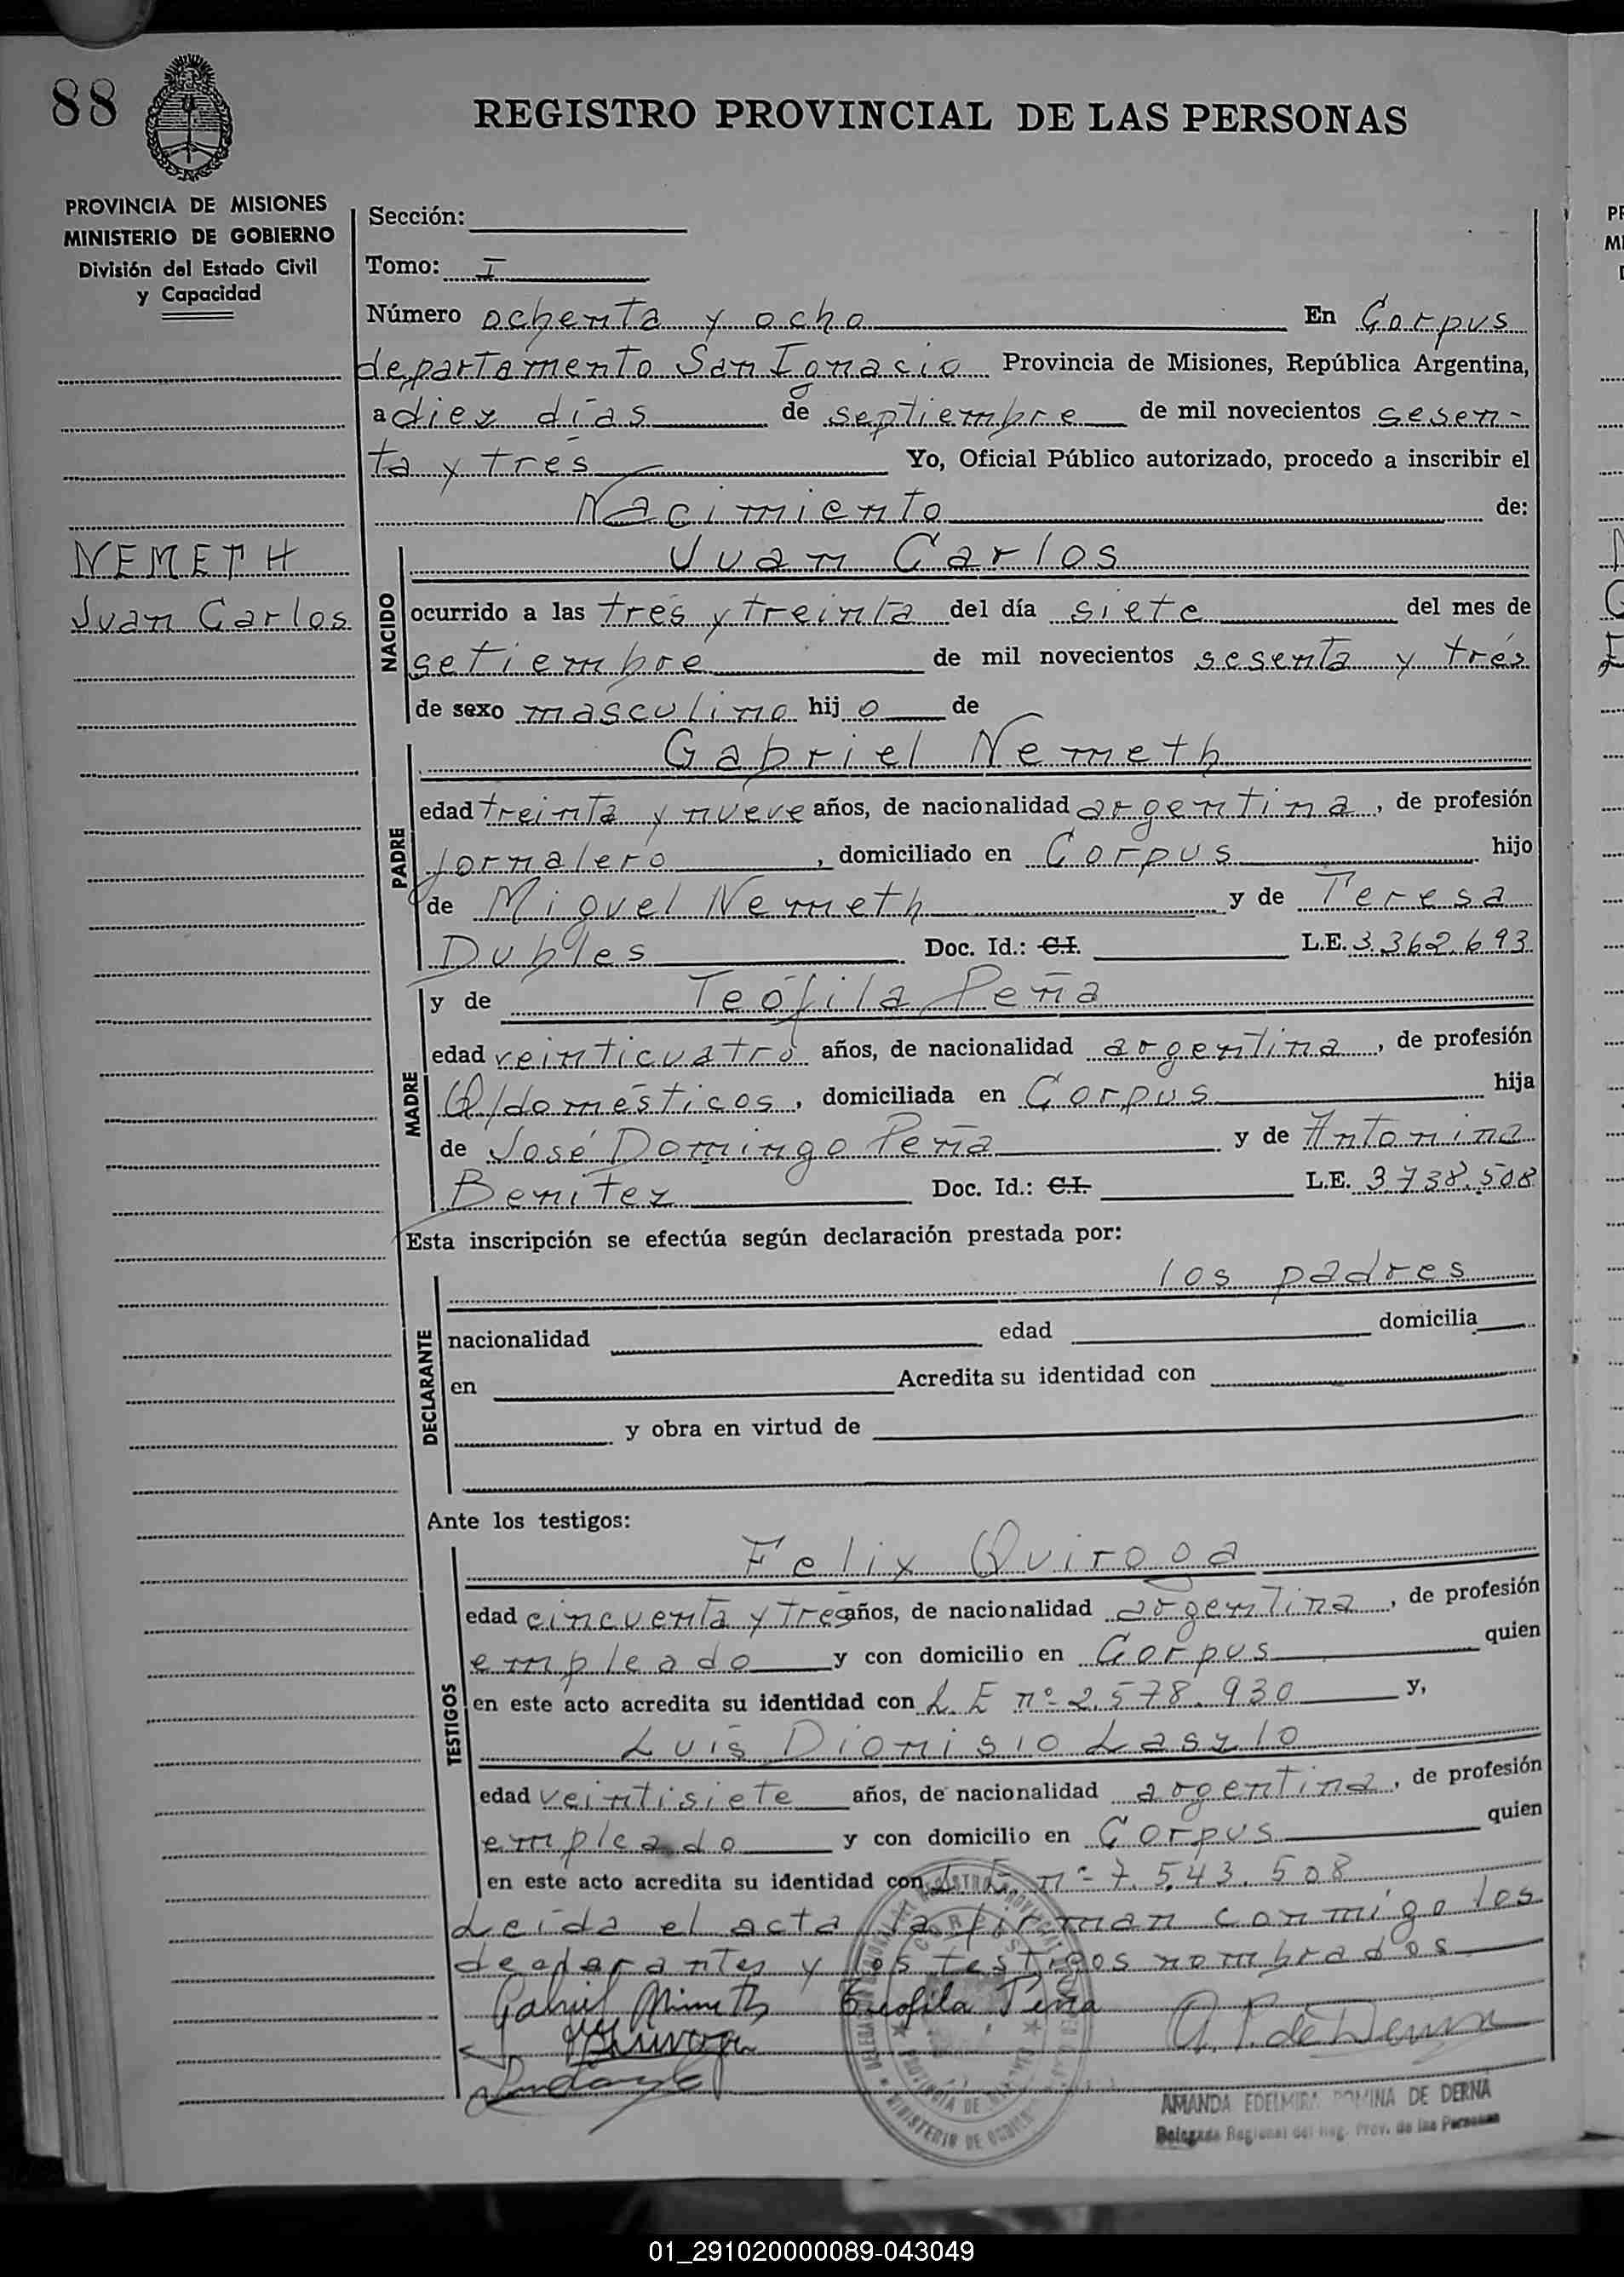 88
REGISTRO PROVINCIAL DE LAS PERSONAS
PROVINCIA DE MISIONES
MINISTERIO DE GOBIERNO
División del Estado Civil
y Capacidad
Sección:
Tomo: I
Número ochenta y ocho En Corpus
departamento San Ignacio Provincia de Misiones, República Argentina,
a diez días de septiembre de mil novecientos sesen-
ta y tres Yo, Oficial Público autorizado, procedo a inscribir el
Nacimiento de:
NEMETH
Juan Carlos
NACIDO
Juan Carlos
ocurrido a las tres y treinta del día siete del mes de
setiembre de mil novecientos sesenta y tres
de sexo masculino hij o de
PADRE
Gabriel Nemeth
edad treinta y nueve años, de nacionalidad argentina, de profesión
jornalero, domiciliado en Corpus hijo
de Miguel Nemeth y de Teresa
Dubles Doc. Id.: C.I. L.E. 3.362.693
MADRE
y de Teófila Peña
edad veinticuatro años, de nacionalidad argentina, de profesión
Q/domésticos, domiciliada en Corpus hija
de José Domingo Peña y de Antonina
Benitez Doc. Id.: C.I. L.E. 3738.508
Esta inscripción se efectúa según declaración prestada por:
DECLARANTE
los padres
nacionalidad edad domicilia
en Acredita su identidad con
y obra en virtud de
Ante los testigos:
TESTIGOS
Felix Quiroga
edad cincuenta y tres años, de nacionalidad argentina, de profesión
empleado y con domicilio en Corpus quien
en este acto acredita su identidad con L. E nº 2.578.930 y,
Luis Dionisio Laszlo
edad veintisiete años, de nacionalidad argentina, de profesión
empleado y con domicilio en Corpus quien
en este acto acredita su identidad con L.E. nº 7.543.508
Leída el acta la firman conmigo los
declarantes y los testigos nombrados
Gabriel Nimeth Teofila Peña
A. P. de Derna
AMANDA EDELMIRA DE DERNA
Delegada Regional del Reg. Prov. de las Personas
CORPUS
PROVINCIA DE
MINISTERIO DE
01_291020000089-043049